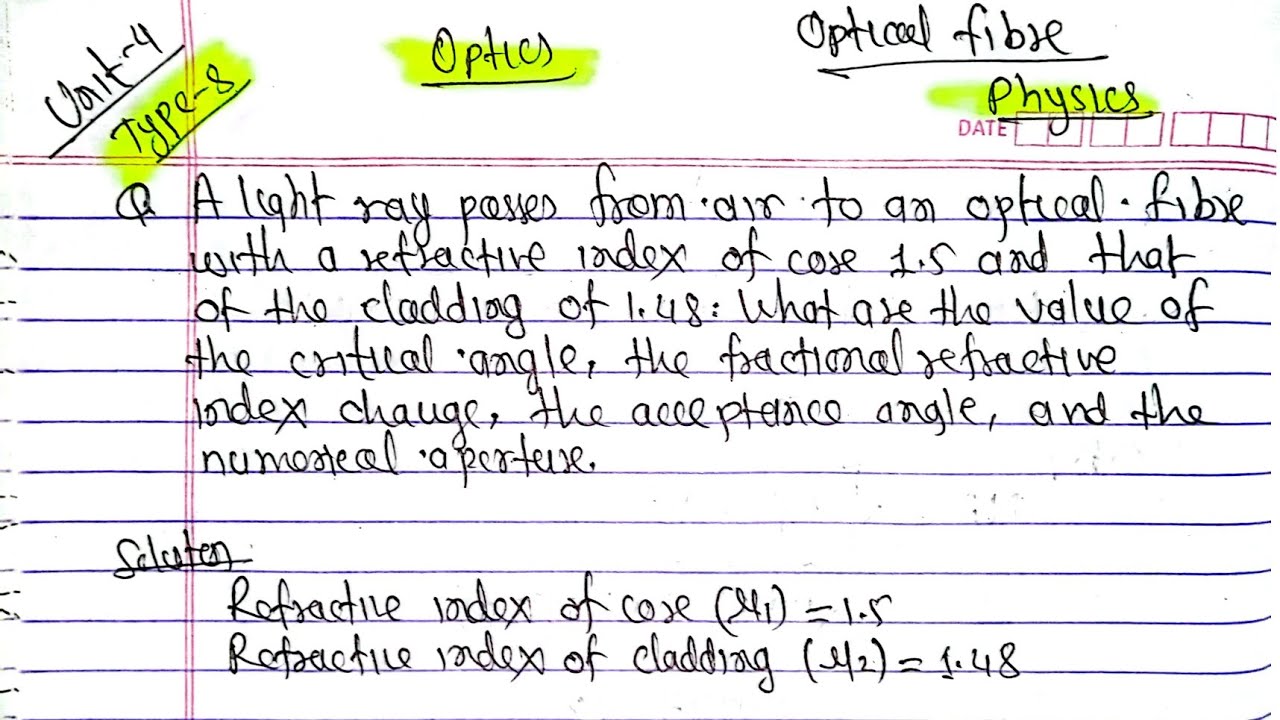 Unit-4
Type-8
Optics
Optical fibre
Physics
DATE
Q A light ray passes from air to an optical fibre
with a refractive index of core 1.5 and that
of the cladding of 1.48. What are the value of
the critical angle, the fractional refractive
index change, the acceptance angle, and the
numerical aperture.
Solution
Refractive index of core (μ1) = 1.5
Refractive index of cladding (μ2) = 1.48